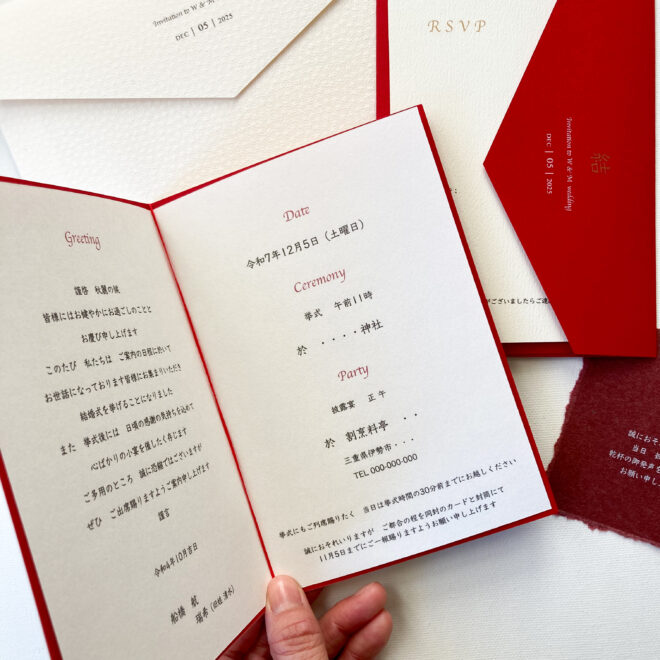 Invitation to W & M
DEC | 05 | 2025
RSVP
結
Invitation to W & M wedding
DEC | 05 | 2025
がございましたらご連
Greeting
謹啓 秋麗の候
皆様にはお健やかにお過ごしのことと
お慶び申し上げます
このたび 私たちは ご案内の日程に於いて
お世話になっております皆様にお集まりいただき
結婚式を挙げることになりました
また 挙式後には 日頃の感謝の気持ちを込めて
心ばかりの小宴を催したく存じます
ご多用のところ 誠に恐縮ではございますが
ぜひ ご出席賜りますようご案内申し上げます
謹言
令和4年10月吉日
船橋 航
瑞希（旧姓 清水）
Date
令和7年12月5日（土曜日）
Ceremony
挙式 午前11時
於 ・・・・神社
Party
披露宴 正午
於 割烹料亭 ・・
三重県伊勢市・・・
TEL 000-000-000
挙式にもご列席賜りたく 当日は挙式時間の30分前までにお越しください
誠におそれいりますが ご都合の程を同封のカードと封筒にて
11月5日までにご一報賜りますようお願い申し上げます
誠におそ
当日 披
乾杯の御発声を
お願い申し